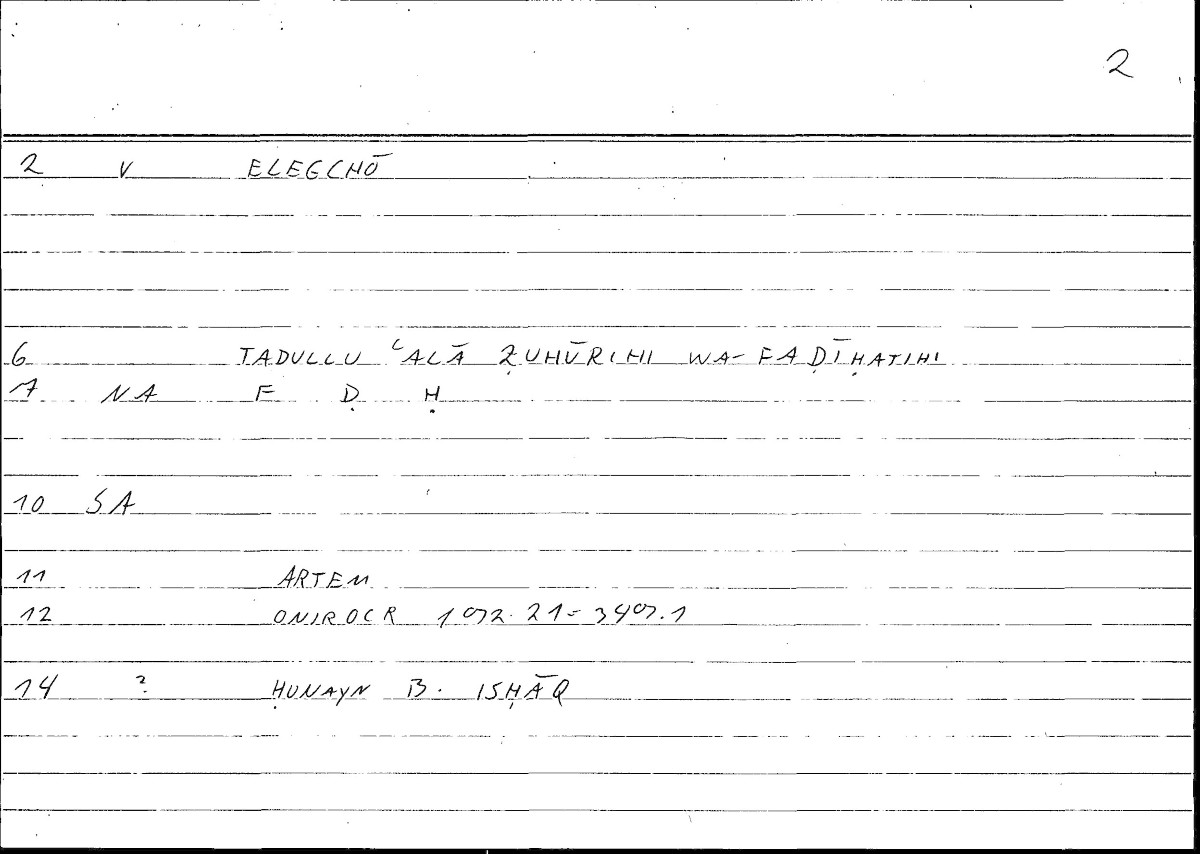 2
2 V ELEGCHŌ
6 TADULLU ʿALĀ ẒUHŪRIHI WA-FAḌĪḤATIHI
7 NA F Ḍ Ḥ
10 SA
11 ARTEM
12 ONIROCR 192.21-349.1
14 ? ḤUNAYN B. ISḤĀQ